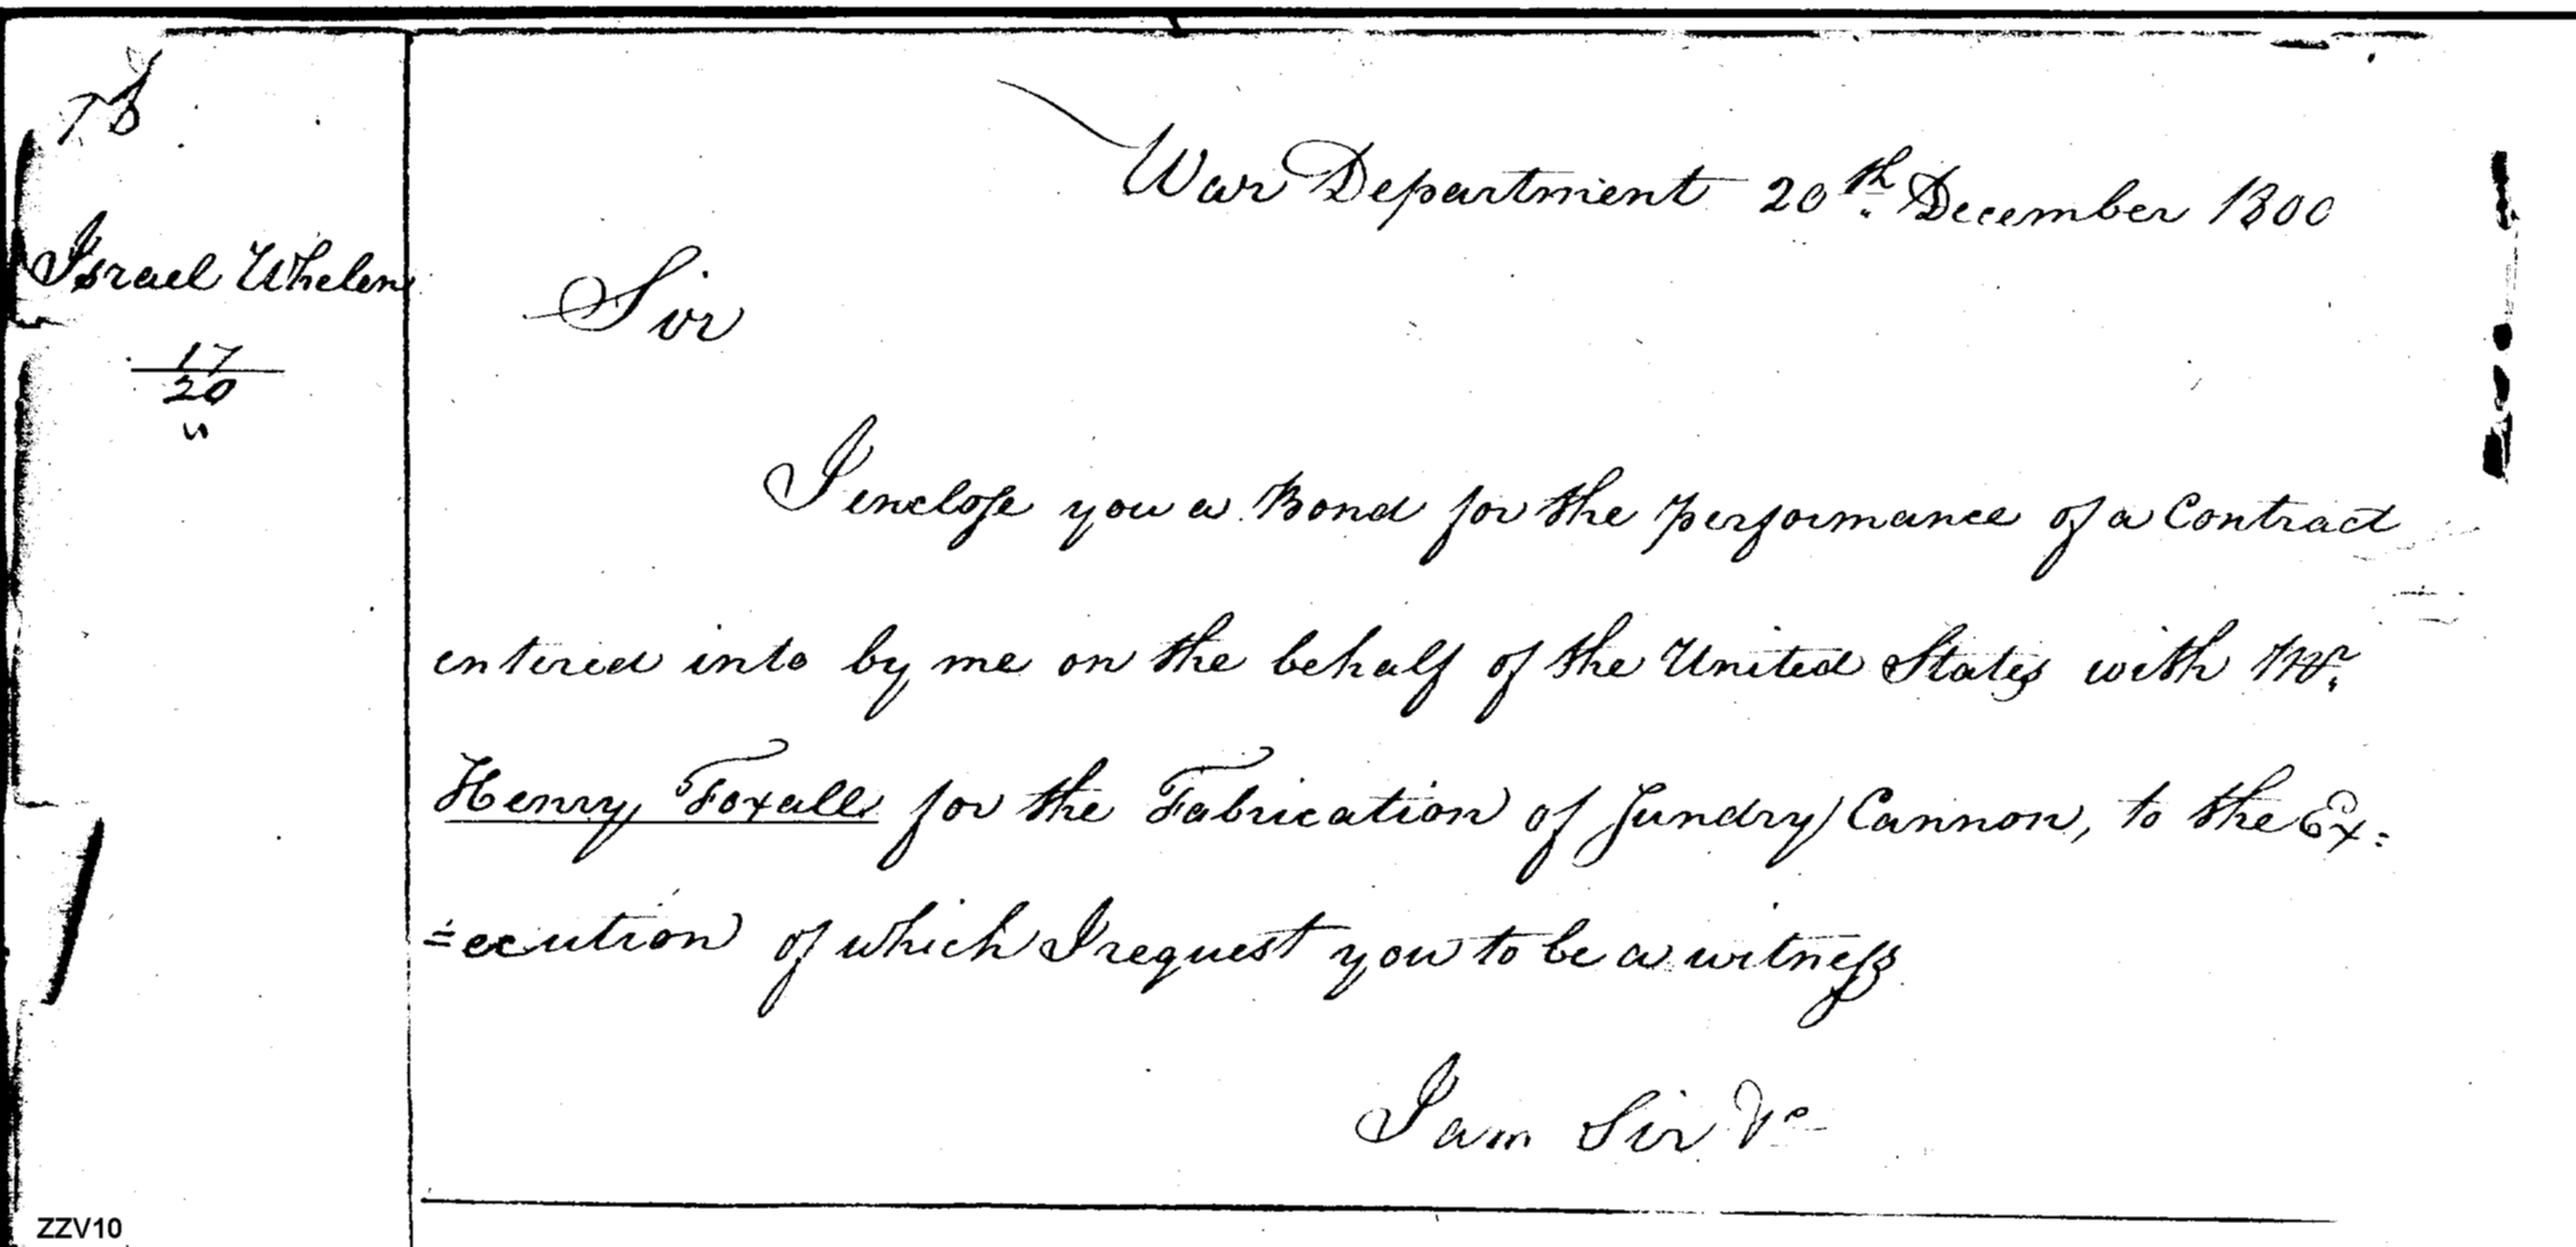 Israel Whelen
17
20
"
War Department 20th. December 1800
Sir
I enclose you a Bond for the performance of a Contract
entered into by me on the behalf of the United States with Mr.
Henry Foxall for the Fabrication of Sundry Cannon, to the Ex=
=ecution of which I request you to be a witness
I am Sir &c
ZZV10